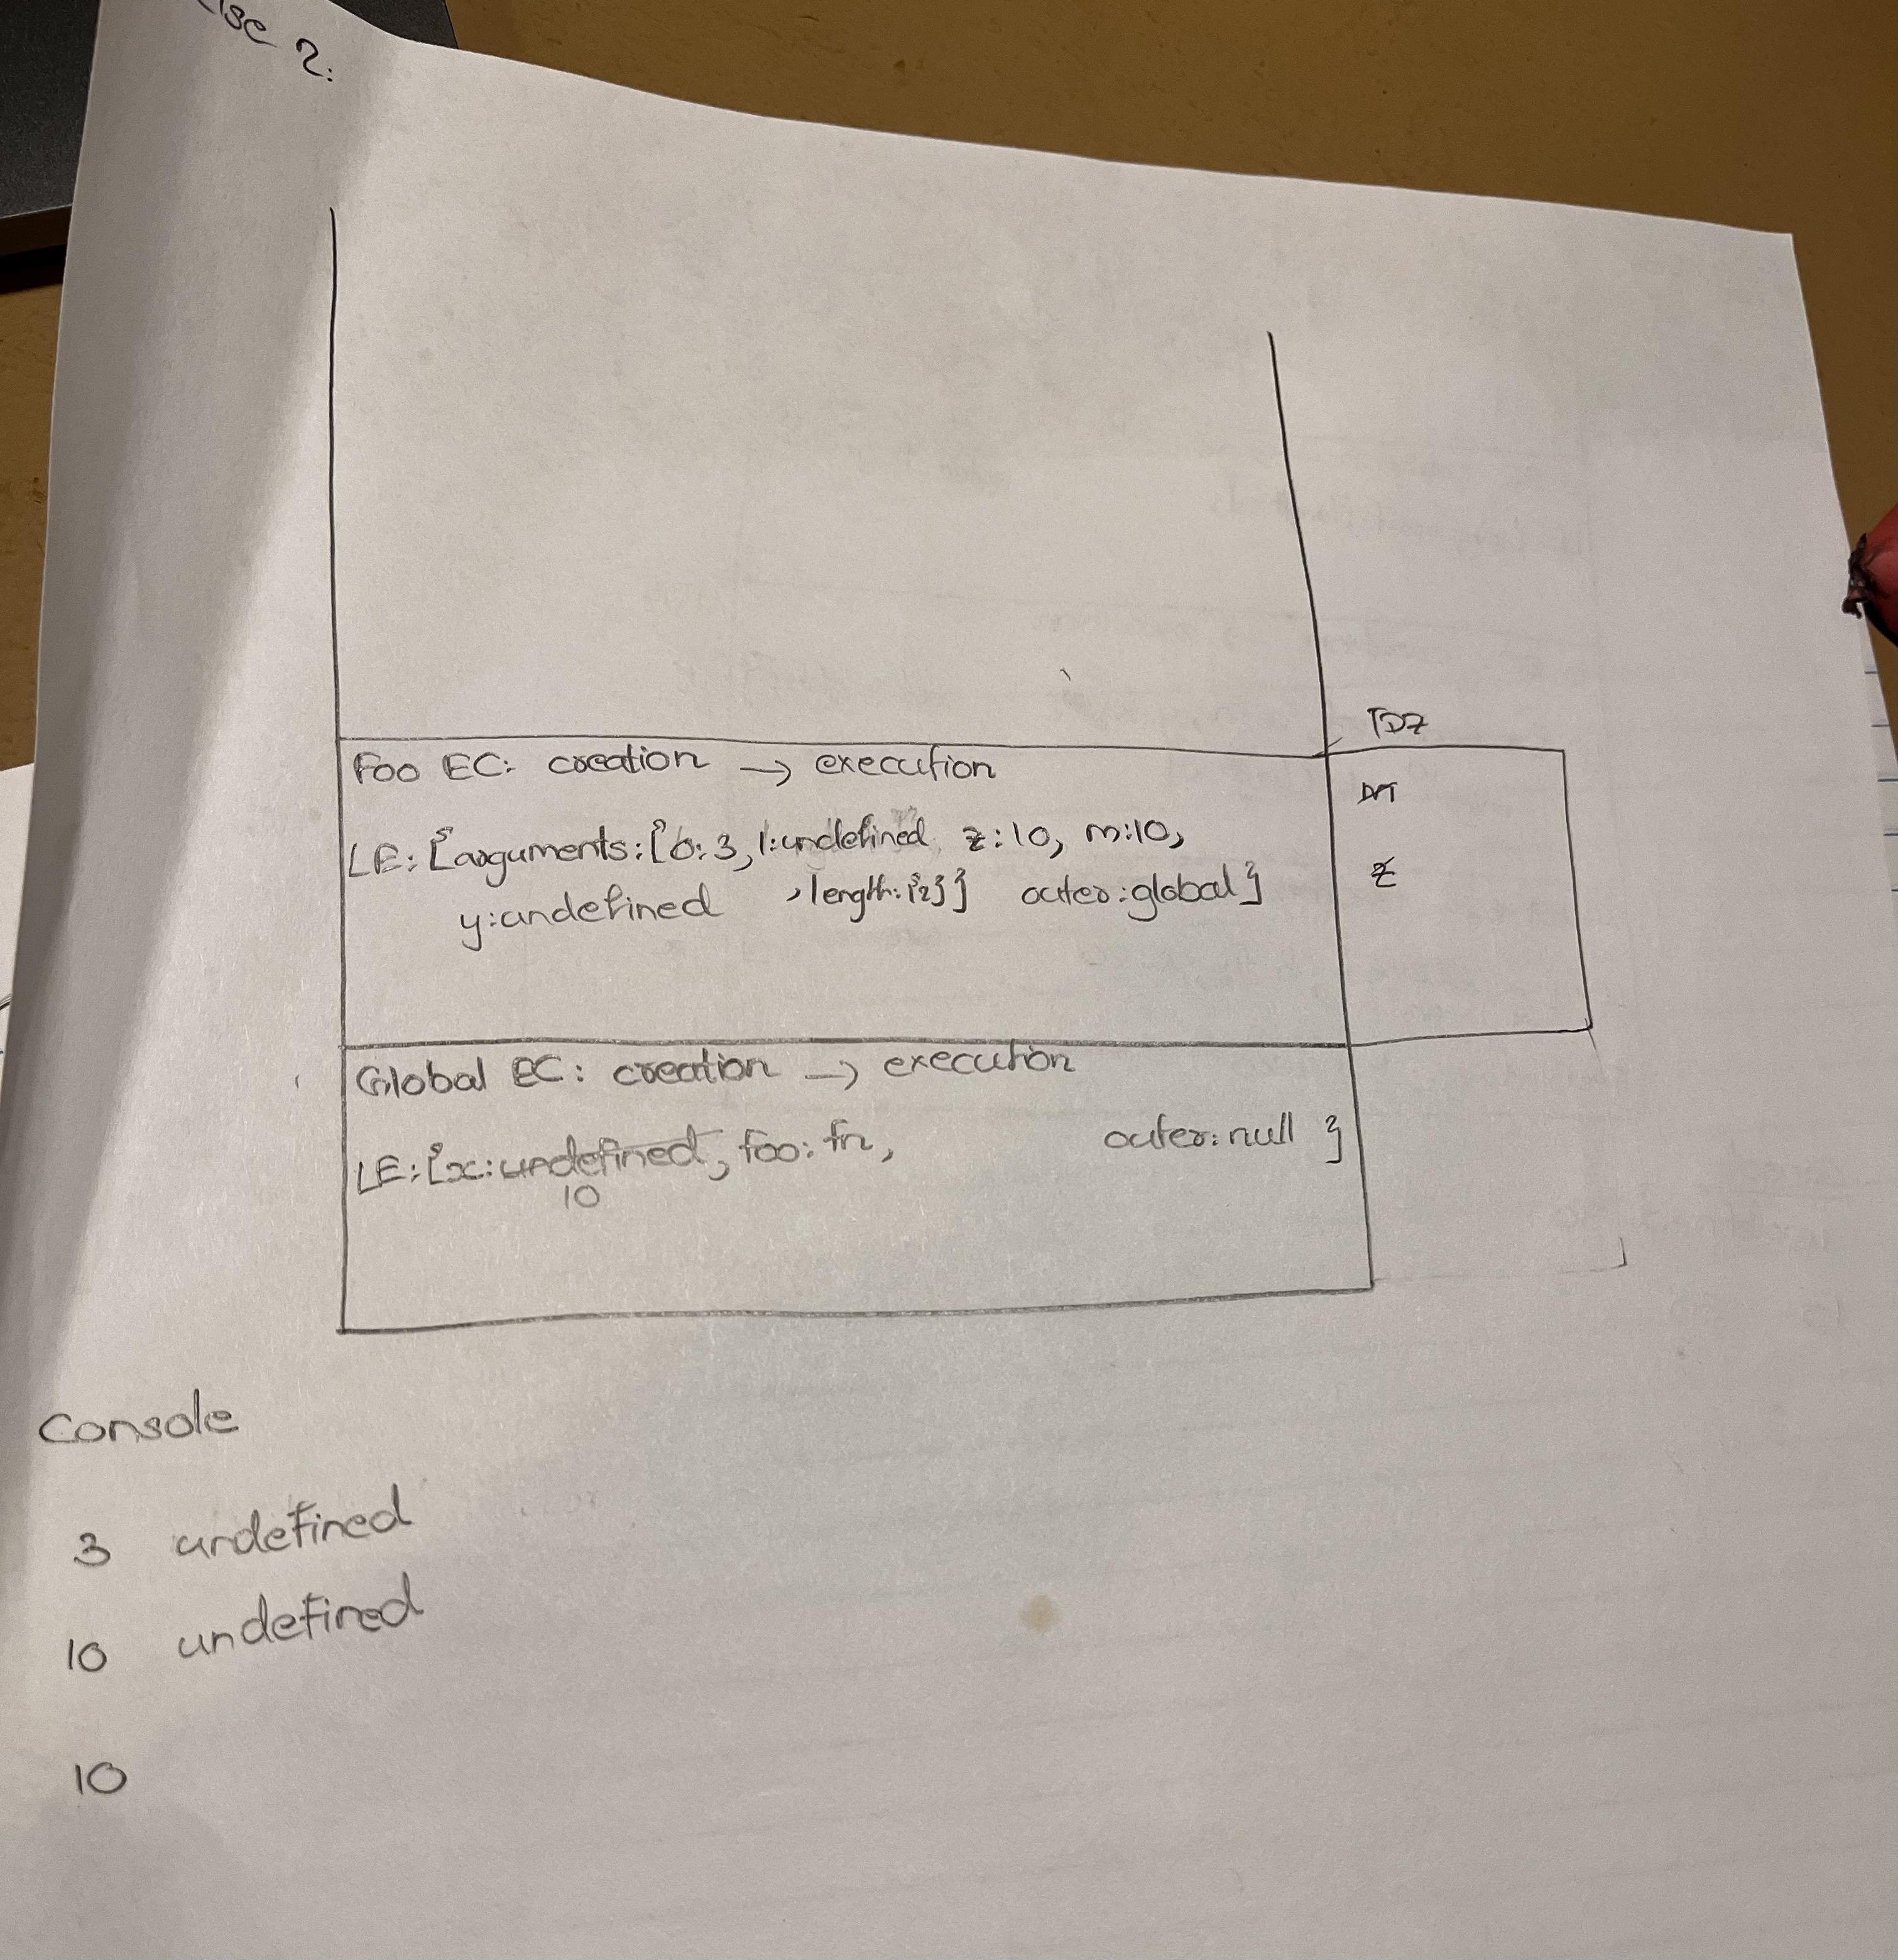 ise 2:
TDZ
Foo EC: creation → execution
m
LE: {arguments:[0:3, 1:undefined, z:10, m:10,
z
y:undefined , length:{2}} outer:global}
Global EC: creation → execution
LE:{x: undefined, foo: fn, outer:null }
10
Console
3 undefined
10 undefined
10